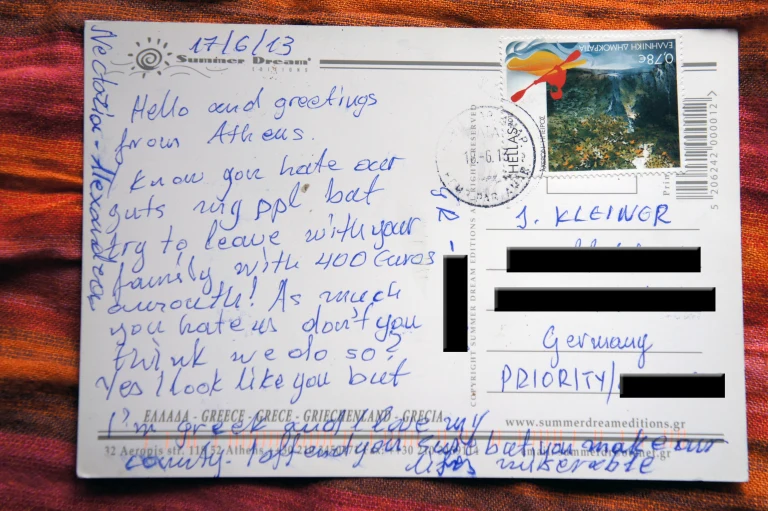 17/6/13
Summer Dream
EDITIONS
Hello and greetings
from Athens.
I know you hate our
guts my ppl but
try to leave with your
family with 400 Euros
a month! As much
you hate us don't you
think we do so?
Yes I look like you but
I'm greek and I love my
country. I offend you guys but you make our
lifes miserable
Nectaria-Alexandra
GR -
ΕΛΛΗΝΙΚΗ ΔΗΜΟΚΡΑΤΙΑ
0,78€
HELLAS
J. KLEINER
Germany
PRIORITY/
5 206242 000012
COPYRIGHT SUMMER DREAM EDITIONS ALL RIGHTS RESERVED
ΕΛΛΑΔΑ - GREECE - GRECE - GRIECHENLAND - GRECIA
www.summerdreameditions.gr
32 Aeropis str.